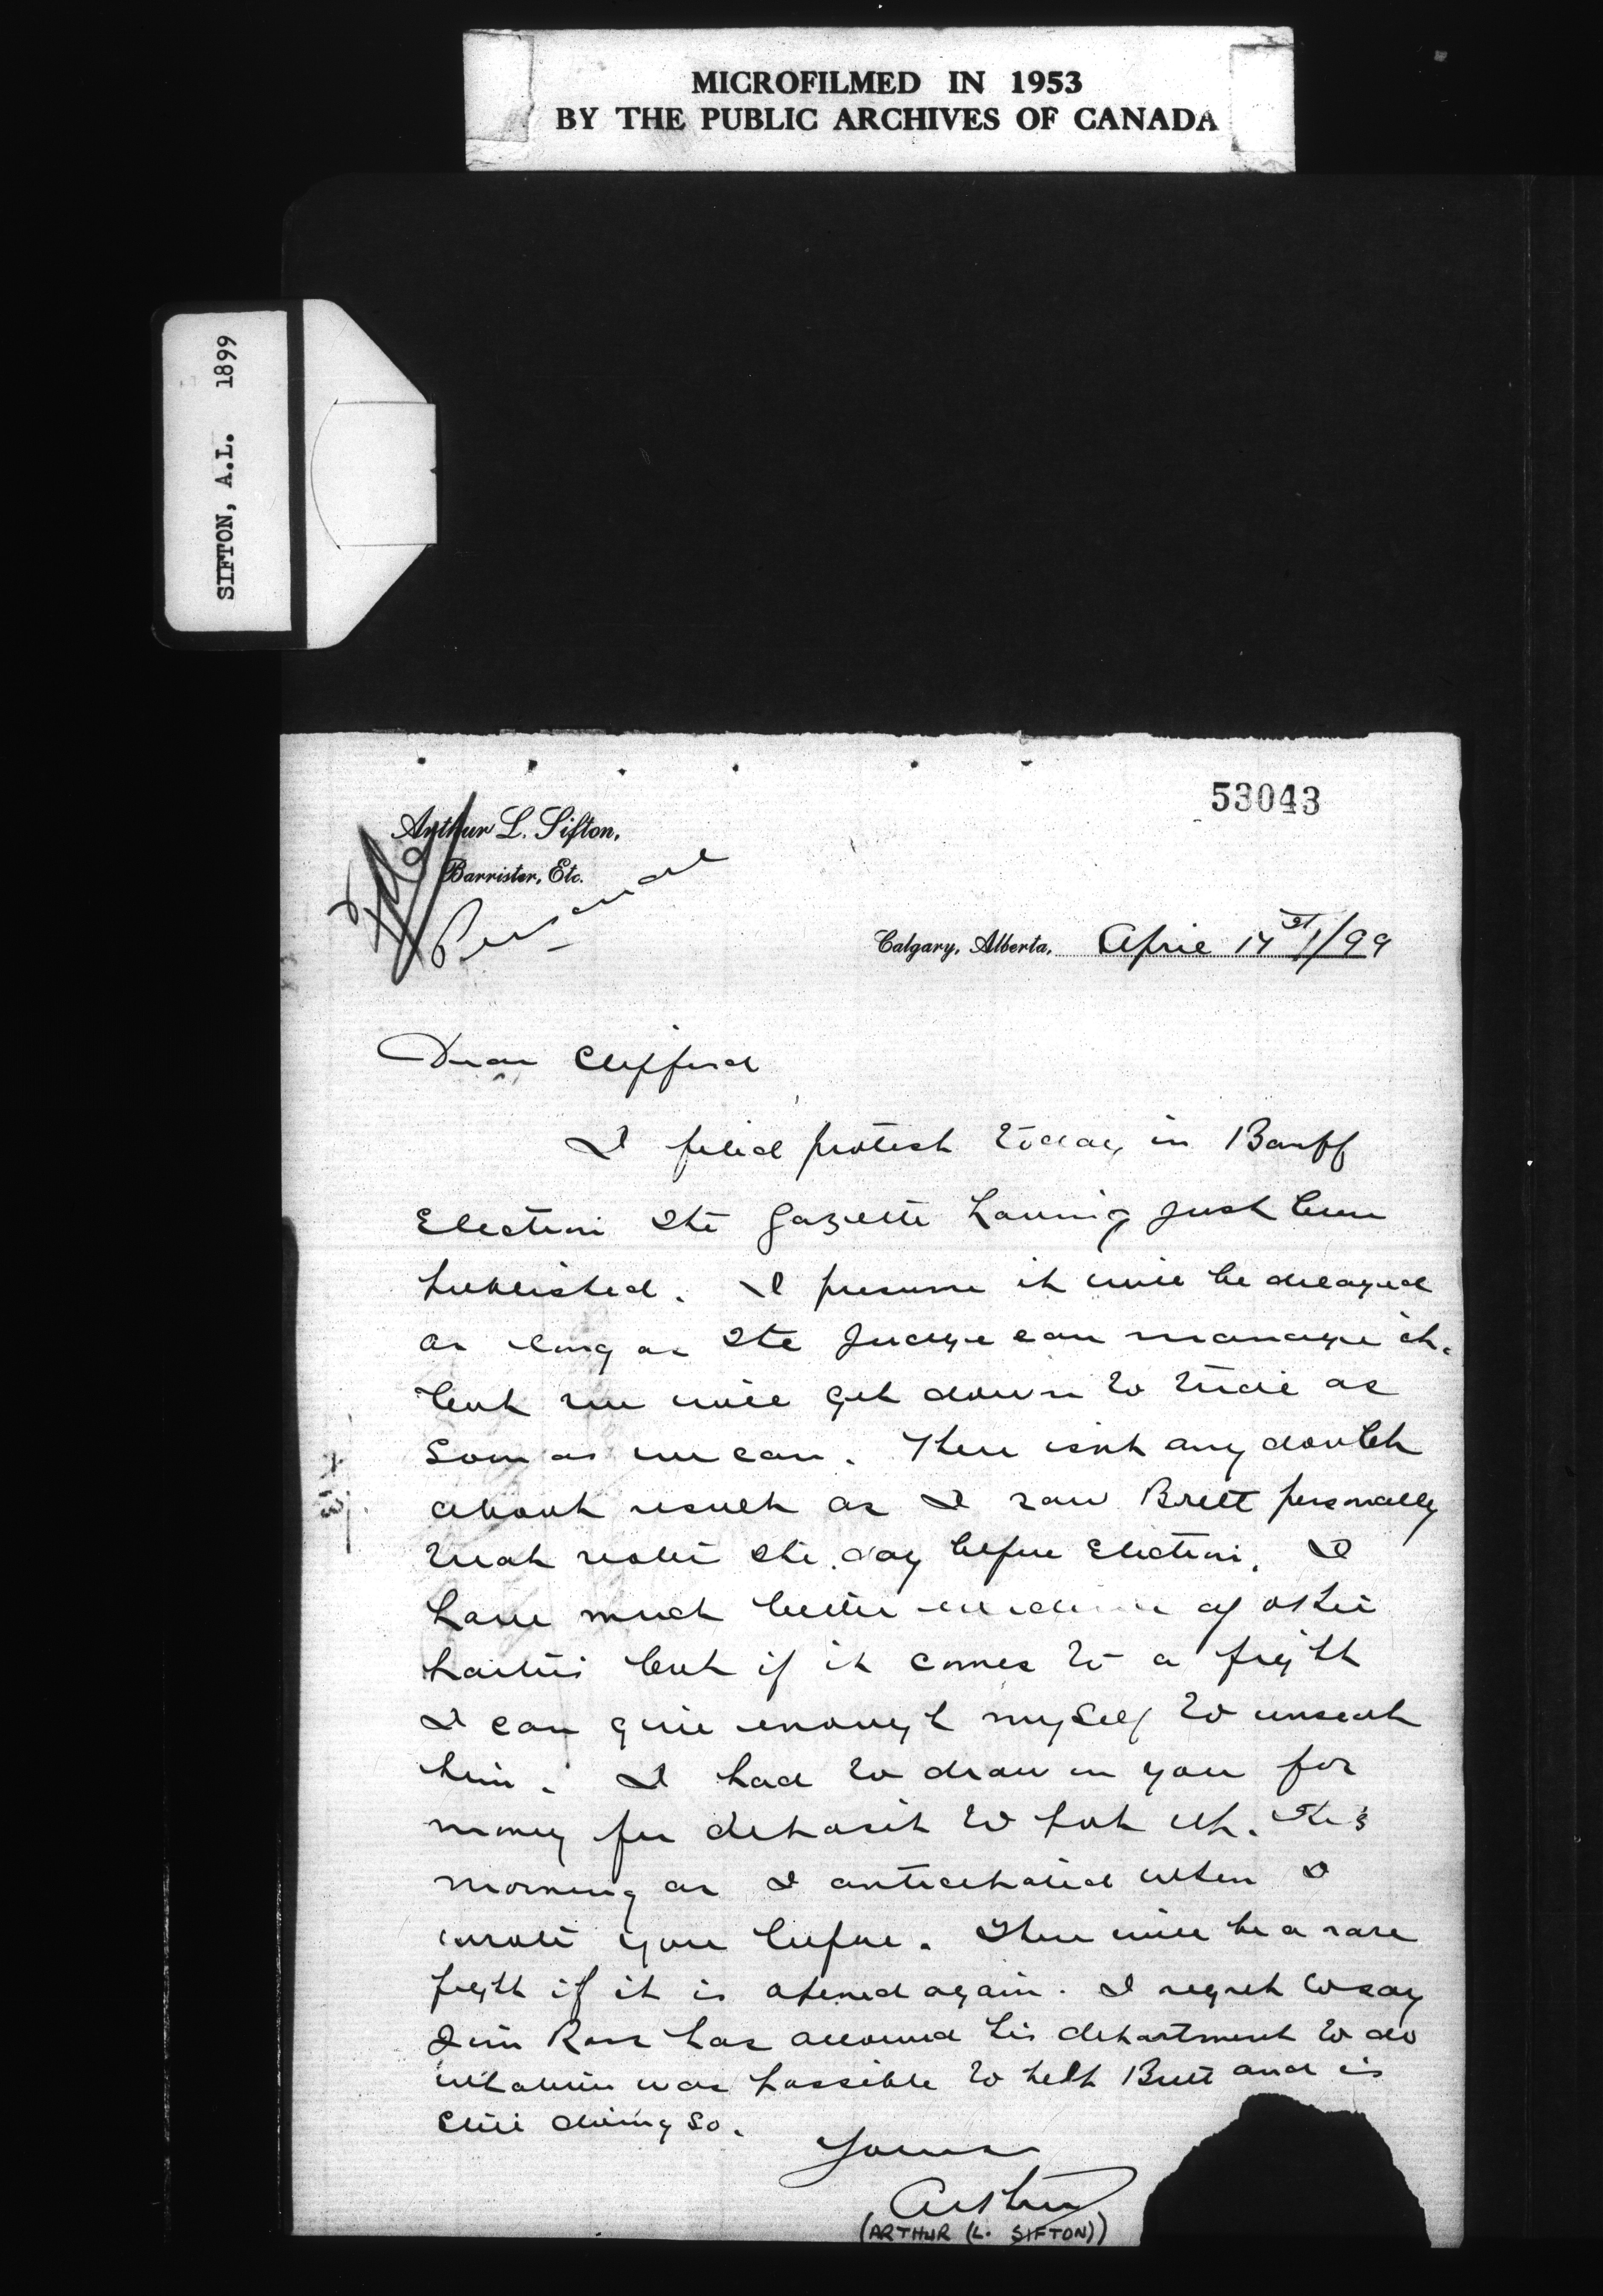 MICROFILMED IN 1953
BY THE PUBLIC ARCHIVES OF CANADA
SIFTON, A.L. 1899
53043
Arthur L. Sifton,
Barrister, Etc.
Personal
Calgary, Alberta, April 17th/99
Dear Clifford
I filed protest today in Banff
Election the Gazette having just been
published. I presume it will be delayed
as long as the Judge can manage it.
but we will get down to trial as
soon as we can. There isnt any doubt
about result as I saw Brett personally
treat voters the day before Election. I
have much better evidence of other
parties but if it comes to a fight
I can give enough myself to unseat
him. I had to draw on you for
money for deposit to put up this
morning as I anticipated when I
wrote you before. There will be a rare
fight if it is opened again. I regret to say
Jim Ross has allowed his department to do
whatever was possible to help Brett and is
still doing so.
Yours
Arthur
(ARTHUR (L. SIFTON))